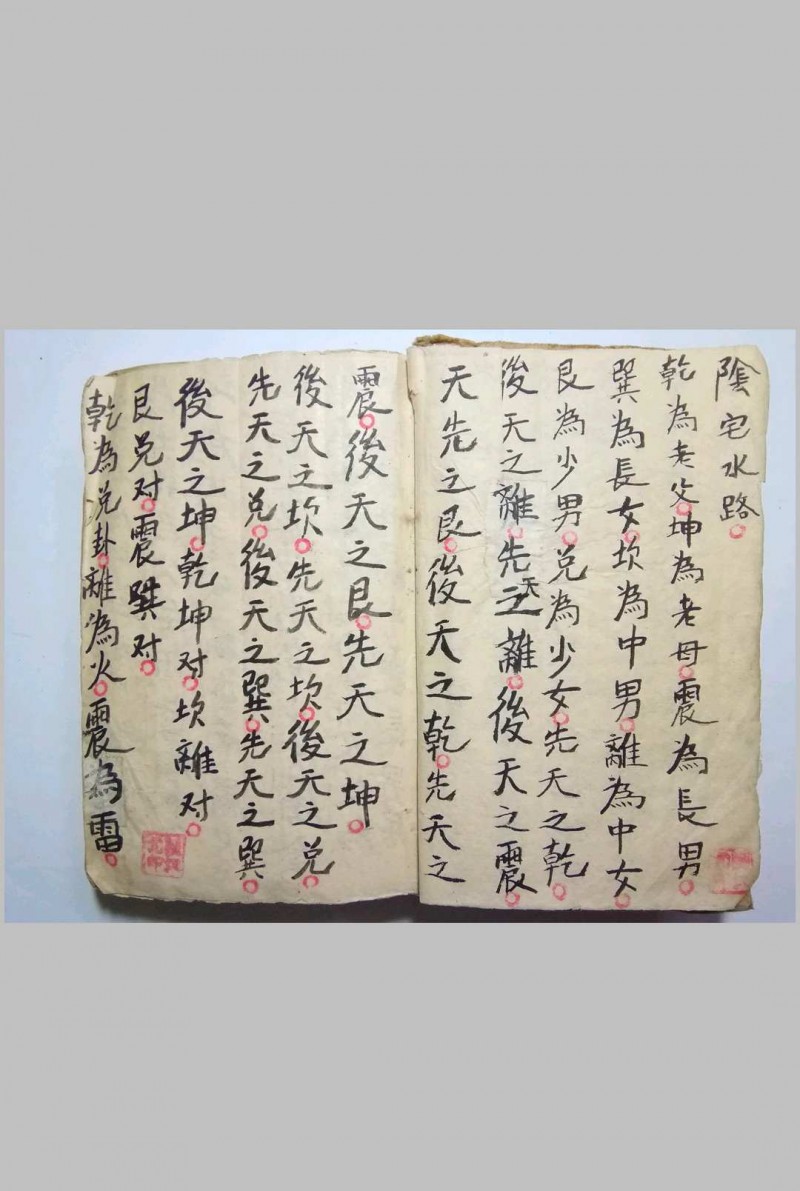 陰宅水路。
乾為老父。坤為老母。震為長男。
巽為長女。坎為中男。離為中女。
艮為少男。兌為少女。先天之乾。
後天之離。先天之離。後天之震。
天先之艮。後天之乾。先天之
震。後天之艮。先天之坤。
後天之坎。先天之坎。後天之兌。
先天之兌。後天之巽。先天之巽。
後天之坤。乾坤对。坎離对。
艮兌对。震巽对。
乾為兌卦。離為火。震為雷。